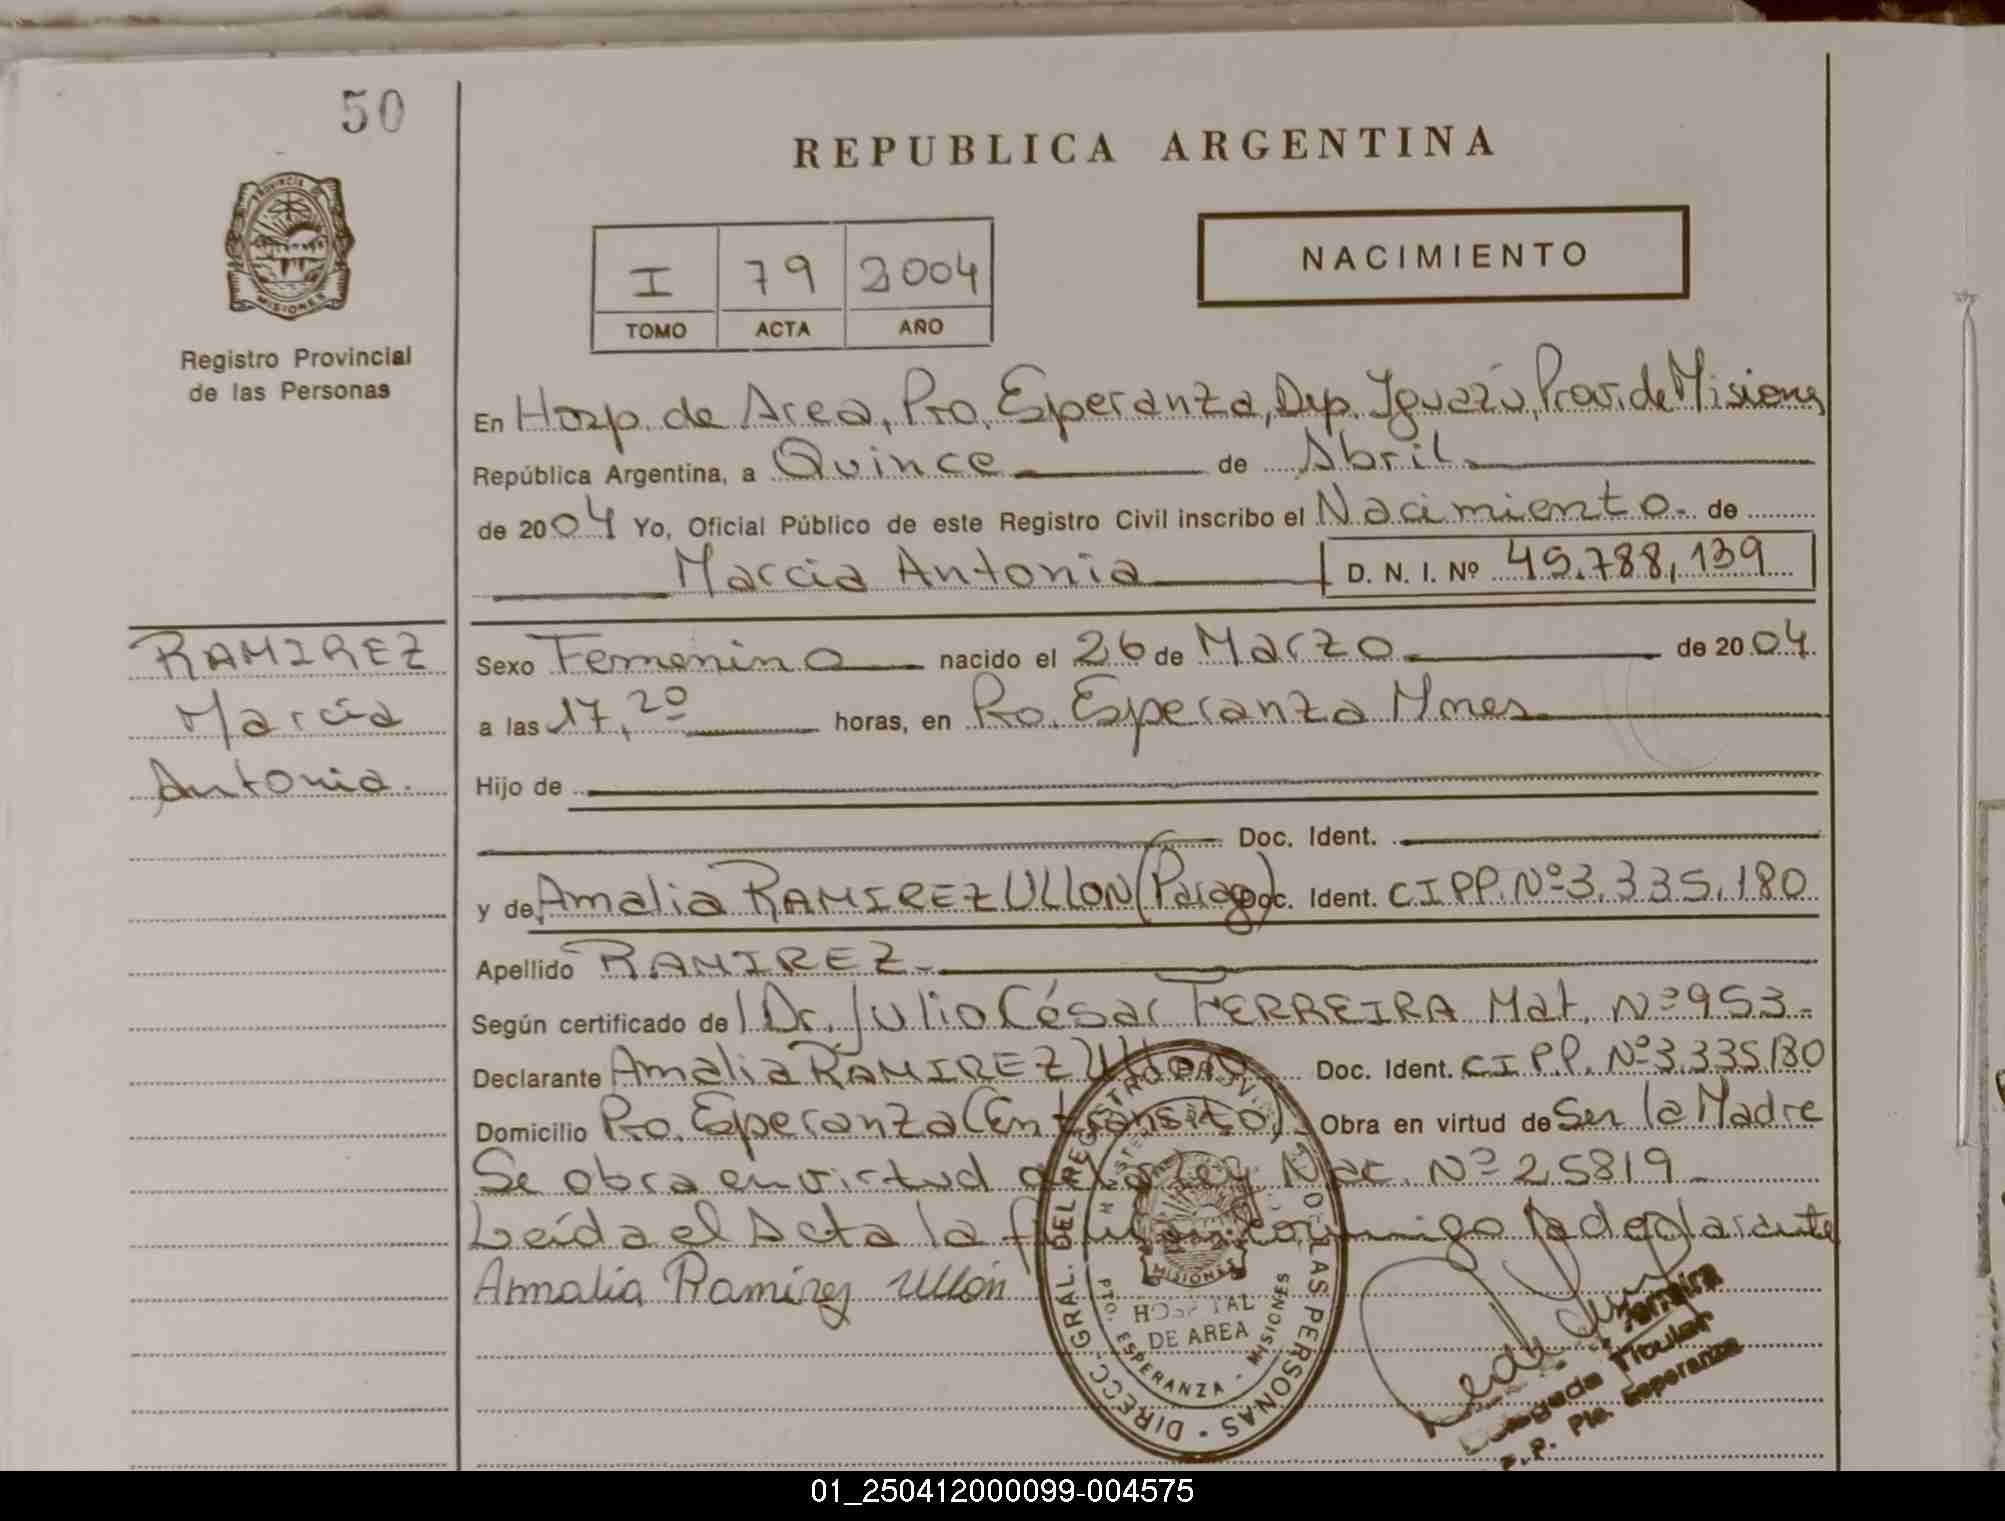 50
REPUBLICA ARGENTINA
PROVINCIA DE
MISIONES
Registro Provincial
de las Personas
I 79 2004
TOMO ACTA AÑO
NACIMIENTO
En Hosp. de Area, Pto. Esperanza, Dep. Iguazú, Prov. de Misiones
República Argentina, a Quince de Abril
de 2004 Yo, Oficial Público de este Registro Civil inscribo el Nacimiento. de
Marcia Antonia D. N. I. Nº 45.788,139
RAMIREZ
Marcia
Antonia.
Sexo Femenino nacido el 26 de Marzo de 2004.
a las 17,20 horas, en Pto. Esperanza Mnes
Hijo de
Doc. Ident.
y de Amalia RAMIREZ ULLON (Parag) Doc. Ident. CIPP. Nº 3.335.180
Apellido RAMIREZ.
Según certificado de Dr. Julio César FERREIRA Mat. Nº 953.
Declarante Amalia RAMIREZ Ullon Doc. Ident. CIPP. Nº 3.335.180
Domicilio Pto. Esperanza (En transito) Obra en virtud de Ser la Madre
Se obra en virtud de la Ley Nac. Nº 25819
Leída el Acta la firman conmigo la declarante
Amalia Ramírez Ullón
DIRECC. GRAL. DEL REGISTRO PROVINCIAL DE LAS PERSONAS
MISIONES
HOSPITAL
DE AREA
PTO. ESPERANZA - MISIONES
Ferreira
Delegada Titular
R.P.P. Pto. Esperanza
01_250412000099-004575